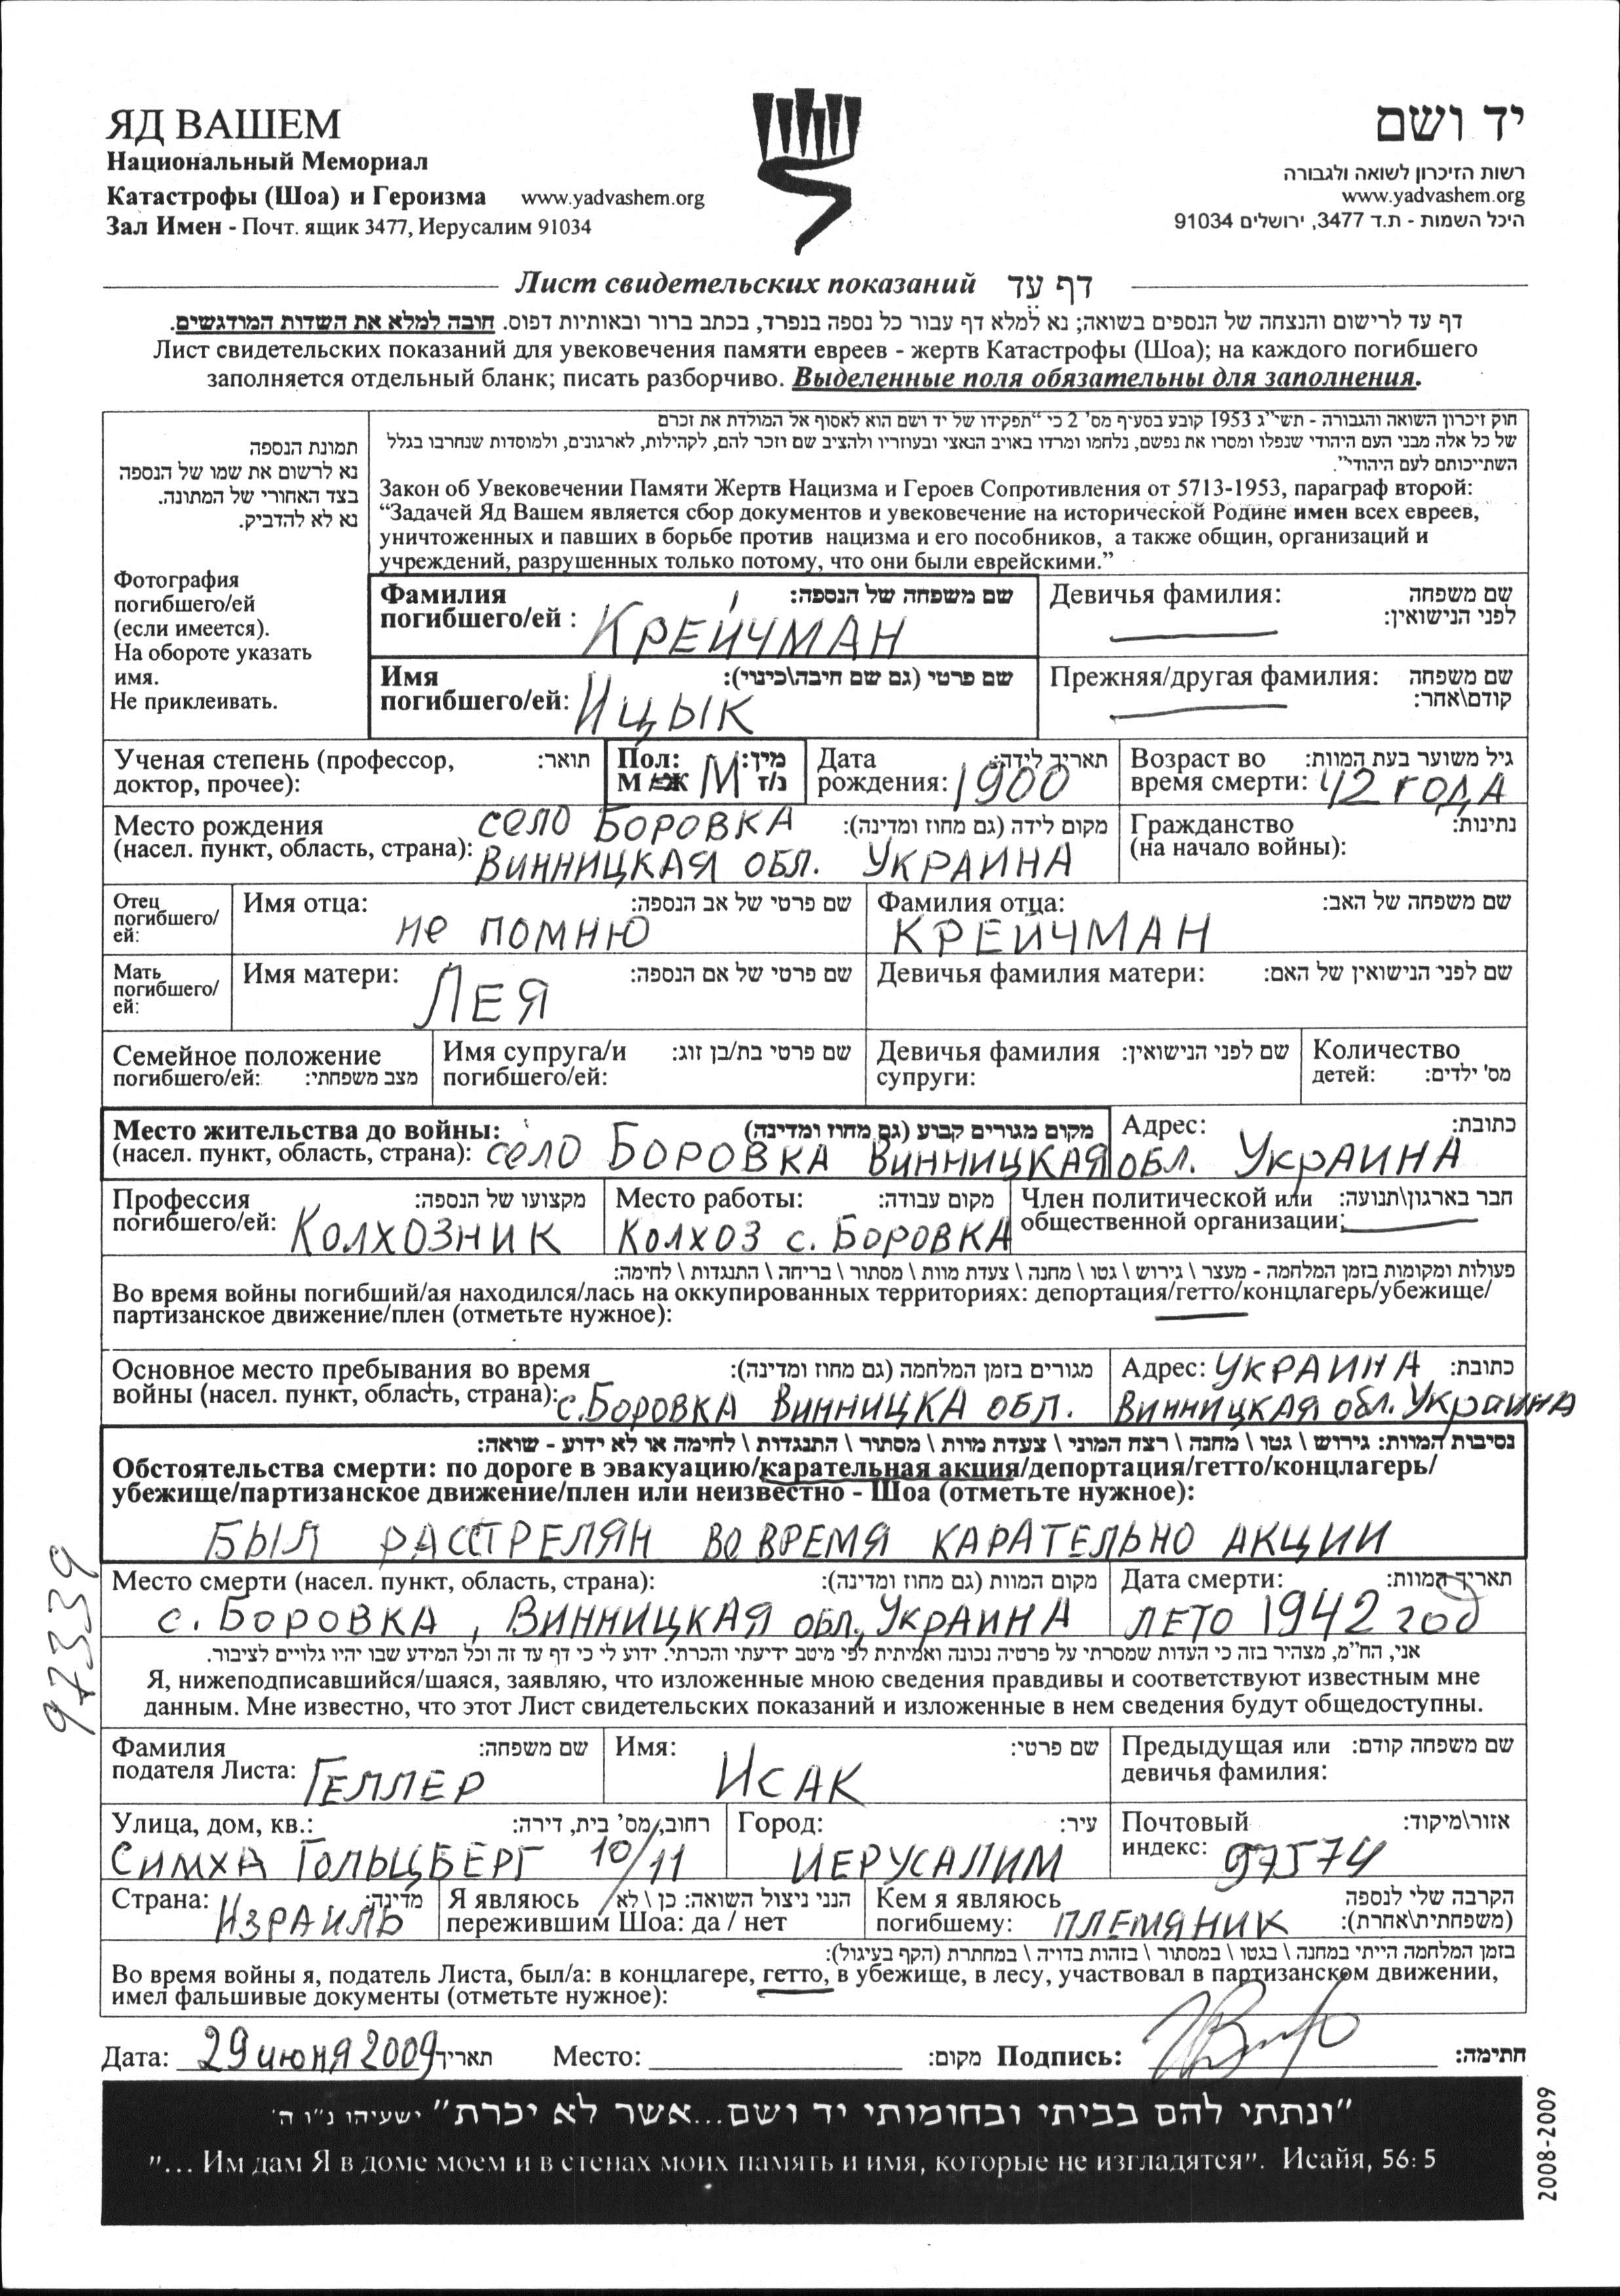 ЯД ВАШЕМ
Национальный Мемориал
Катастрофы (Шоа) и Героизма www.yadvashem.org
Зал Имен - Почт. ящик 3477, Иерусалим 91034
יד ושם
רשות הזיכרון לשואה ולגבורה
www.yadvashem.org
היכל השמות - ת.ד 3477, ירושלים 91034
Лист свидетельских показаний דף עד
דף עד לרישום והנצחה של הנספים בשואה; נא למלא דף עבור כל נספה בנפרד, בכתב ברור ובאותיות דפוס. חובה למלא את השדות המודגשים.
Лист свидетельских показаний для увековечения памяти евреев - жертв Катастрофы (Шоа); на каждого погибшего
заполняется отдельный бланк; писать разборчиво. Выделенные поля обязательны для заполнения.
תמונת הנספה
נא לרשום את שמו של הנספה
בצד האחורי של המתונה.
נא לא להדביק.
Фотография
погибшего/ей
(если имеется).
На обороте указать
имя.
Не приклеивать.
חוק זיכרון השואה והגבורה - תשי"ג 1953 קובע בסעיף מס' 2 כי "תפקידו של יד ושם הוא לאסוף אל המולדת את זכרם
של כל אלה מבני העם היהודי שנפלו ומסרו את נפשם, נלחמו ומרדו באויב הנאצי ובעוזריו ולהציב שם וזכר להם, לקהילות, לארגונים, ולמוסדות שנחרבו בגלל
השתייכותם לעם היהודי".
Закон об Увековечении Памяти Жертв Нацизма и Героев Сопротивления от 5713-1953, параграф второй:
“Задачей Яд Вашем является сбор документов и увековечение на исторической Родине имен всех евреев,
уничтоженных и павших в борьбе против нацизма и его пособников, а также общин, организаций и
учреждений, разрушенных только потому, что они были еврейскими.”
Фамилия שם משפחה של הנספה:
погибшего/ей : КРЕЙЧМАН
Девичья фамилия: שם משפחה
לפני הנישואין:
Имя שם פרטי (גם שם חיבה\כינוי):
погибшего/ей: ИЦЫК
Прежняя/другая фамилия: שם משפחה
קודם\אחר:
Ученая степень (профессор, תואר:
доктор, прочее):
Пол: М מין:
М /Ж נ/ז
Дата תאריך לידה:
рождения: 1900
Возраст во גיל משוער בעת המוות:
время смерти: 42 ГОДА
Место рождения СЕЛО БОРОВКА מקום לידה (גם מחוז ומדינה):
(насел. пункт, область, страна): ВИННИЦКАЯ ОБЛ. УКРАИНА
Гражданство נתינות:
(на начало войны):
Отец
погибшего/
ей:
Имя отца: שם פרטי של אב הנספה:
НЕ ПОМНЮ
Фамилия отца: שם משפחה של האב:
КРЕЙЧМАН
Мать
погибшего/
ей:
Имя матери: שם פרטי של אם הנספה:
ЛЕЯ
Девичья фамилия матери: שם לפני הנישואין של האם:
Семейное положение
погибшего/ей: מצב משפחתי:
Имя супруга/и שם פרטי בת/בן זוג:
погибшего/ей:
Девичья фамилия שם לפני הנישואין:
супруги:
Количество
детей: מס' ילדים:
Место жительства до войны: מקום מגורים קבוע (גם מחוז ומדינה)
(насел. пункт, область, страна): СЕЛО БОРОВКА ВИННИЦКАЯ
Адрес: כתובת:
ОБЛ. УКРАИНА
Профессия מקצועו של הנספה:
погибшего/ей: КОЛХОЗНИК
Место работы: מקום עבודה:
КОЛХОЗ С. БОРОВКА
Член политической или חבר בארגון\תנועה:
общественной организации:
פעולות ומקומות בזמן המלחמה - מעצר \ גירוש \ גטו \ מחנה \ צעדת מוות \ מסתור \ בריחה \ התנגדות \ לחימה:
Во время войны погибший/ая находился/лась на оккупированных территориях: депортация/гетто/концлагерь/убежище/
партизанское движение/плен (отметьте нужное):
Основное место пребывания во время מגורים בזמן המלחמה (גם מחוז ומדינה):
войны (насел. пункт, область, страна): С. БОРОВКА ВИННИЦКА ОБЛ.
Адрес: УКРАИНА כתובת:
ВИННИЦКАЯ ОБЛ. УКРАИНА
נסיבות המוות: גירוש \ גטו \ מחנה \ רצח המוני \ צעדת מוות \ מסתור \ התנגדות \ לחימה או לא ידוע - שואה:
Обстоятельства смерти: по дороге в эвакуацию/карательная акция/депортация/гетто/концлагерь/
убежище/партизанское движение/плен или неизвестно - Шоа (отметьте нужное):
БЫЛ РАССТРЕЛЯН ВО ВРЕМЯ КАРАТЕЛЬНО АКЦИИ
Место смерти (насел. пункт, область, страна): מקום המוות (גם מחוז ומדינה):
С. БОРОВКА, ВИННИЦКАЯ ОБЛ., УКРАИНА
Дата смерти: תאריך המוות:
ЛЕТО 1942 год
אני, הח"מ, מצהיר בזה כי העדות שמסרתי על פרטיה נכונה ואמיתית לפי מיטב ידיעתי והכרתי. ידוע לי כי דף עד זה וכל המידע שבו יהיו גלויים לציבור.
Я, нижеподписавшийся/шаяся, заявляю, что изложенные мною сведения правдивы и соответствуют известным мне
данным. Мне известно, что этот Лист свидетельских показаний и изложенные в нем сведения будут общедоступны.
Фамилия שם משפחה:
подателя Листа: ГЕЛЛЕР
Имя: שם פרטי:
ИСАК
Предыдущая или שם משפחה קודם:
девичья фамилия:
Улица, дом, кв.: רחוב, מס' בית, דירה:
СИМХА ГОЛЬЦБЕРГ 10/11
Город: עיר:
ИЕРУСАЛИМ
Почтовый אזור\מיקוד:
индекс: 97574
Страна: מדינה:
ИЗРАИЛЬ
Я являюсь הנני ניצול השואה: כן \ לא
пережившим Шоа: да / нет
Кем я являюсь הקרבה שלי לנספה
погибшему: ПЛЕМЯНИК (משפחתית\אחרת):
בזמן המלחמה הייתי במחנה \ בגטו \ במסתור \ בזהות בדויה \ במחתרת (הקף בעיגול):
Во время войны я, податель Листа, был/а: в концлагере, гетто, в убежище, в лесу, участвовал в партизанском движении,
имел фальшивые документы (отметьте нужное):
Дата: 29 июня 2009 תאריך Место: מקום: Подпись: חתימה:
"ונתתי להם בביתי ובחומותי יד ושם...אשר לא יכרת" ישעיהו נ"ו ה'
"... Им дам Я в доме моем и в стенах моих память и имя, которые не изгладятся". Исайя, 56: 5
97339
2008-2009